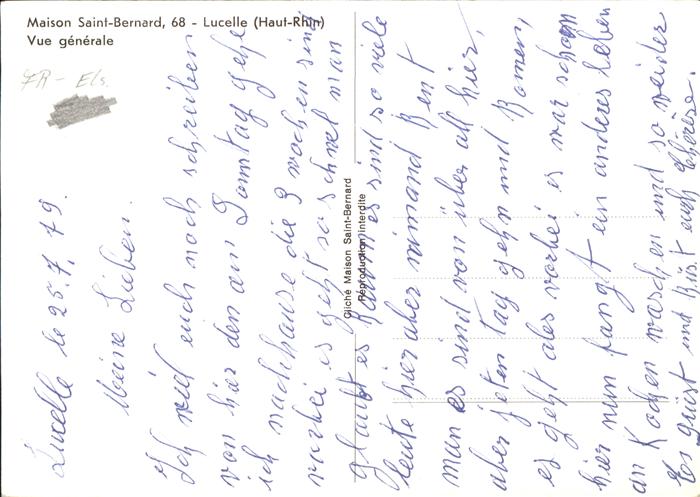 Maison Saint-Bernard, 68 - Lucelle (Haut-Rhin)
Vue générale
FR - Els.
Cliché Maison Saint-Bernard
Reproduction interdite
Lucelle le 25.7.79.
Meine Lieben.
Ich will euch noch schreiben
von hier den am Somtag gehe
ich nachhause die 3 wochen sind
vorbei es geht so schnel man
glaubt es kaum es sind so viele
leute hier aber nimand kent
man es sind von über all hier,
aber jeten tag gehn und komen,
es geht ales vorbei es war schon
hier nun fangt ein anderes leben
an Kochen waschen und so weider
Es grüst und küst euch Thérèse.